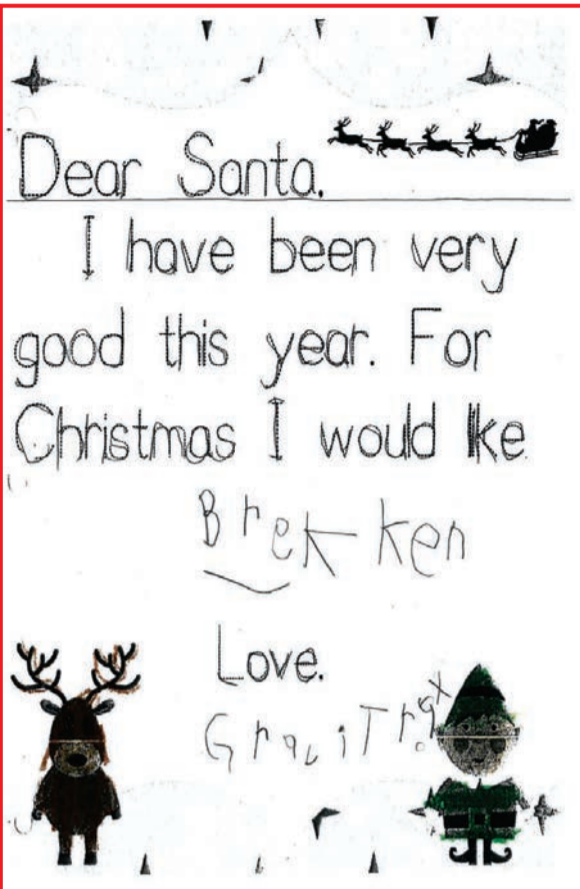 Dear Santa,
I have been very
good this year. For
Christmas I would like
Brekken
Love,
GraviTrax